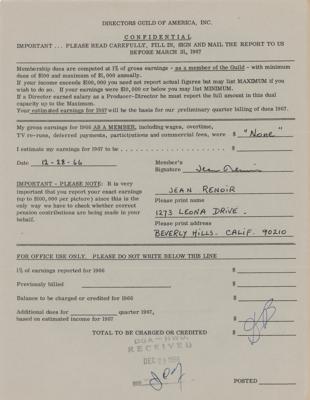 DIRECTORS GUILD OF AMERICA, INC.
CONFIDENTIAL
IMPORTANT ... PLEASE READ CAREFULLY, FILL IN, SIGN AND MAIL THE REPORT TO US
BEFORE MARCH 31, 1967
Membership dues are computed at 1% of gross earnings - as a member of the Guild - with minimum
dues of $100 and maximum of $1,000 annually.
If your income exceeds $100,000 you need not report actual figures but may list MAXIMUM if you
wish to do so. If your earnings were $10,000 or below you may list MINIMUM.
If a Director earned salary as a Producer-Director he must report the full amount in this dual
capacity up to the Maximum.
Your estimated earnings for 1967 will be the basis for our preliminary quarter billing of dues 1967.
My gross earnings for 1966 AS A MEMBER, including wages, overtime,
TV re-runs, deferred payments, participations and commercial fees, were $ "None"
I estimate my earnings for 1967 to be $
Date 12-28-66 Member's
Signature Jean Renoir
IMPORTANT - PLEASE NOTE: It is very
important that you report your exact earnings
(up to $100,000 per picture) since this is the
only way we have to check whether correct
pension contributions are being made in your
behalf.
JEAN RENOIR
Please print name
1273 LEONA DRIVE.
Please print address
BEVERLY HILLS. CALIF. 90210
FOR OFFICE USE ONLY. PLEASE DO NOT WRITE BELOW THIS LINE
1% of earnings reported for 1966 $
Previously billed $
Balance to be charged or credited for 1966 $
Additional dues for quarter 1967,
based on estimated income for 1967 $
TOTAL TO BE CHARGED OR CREDITED $
DGA-HWD.
RECEIVED
DEC 1966
POSTED